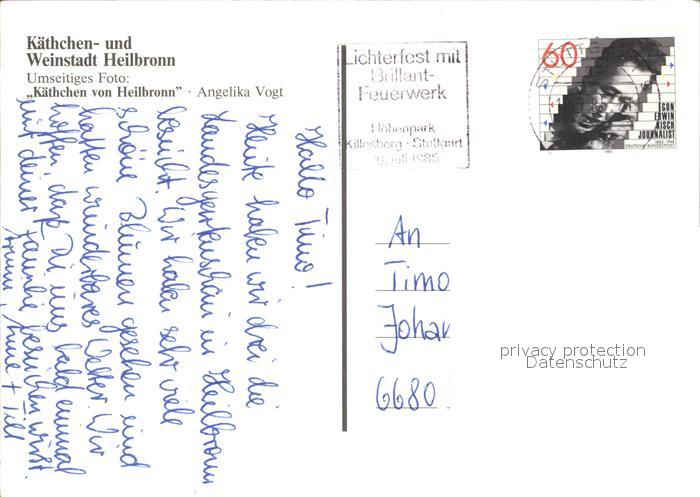 Käthchen- und
Weinstadt Heilbronn
Umseitiges Foto:
„Käthchen von Heilbronn" · Angelika Vogt
Hallo Timo!
Heute haben wir drei die
Landesgartenschau in Heilbronn
besucht. Wir haben sehr viele
schöne Blumen gesehen und
hatten wunderbares Wetter. Wir
hoffen, daß Du uns bald einmal
mit deiner Familie besuchen wirst.
Anne + Till
Lichterfest mit
Brillant-
Feuerwerk
Höhenpark
Killesberg · Stuttgart
Juli 1985
60
EGON
ERWIN
KISCH
JOURNALIST
1885-1948
DEUTSCHE BUNDESPOST
1985
An
Timo
Johan
6680
privacy protection
Datenschutz